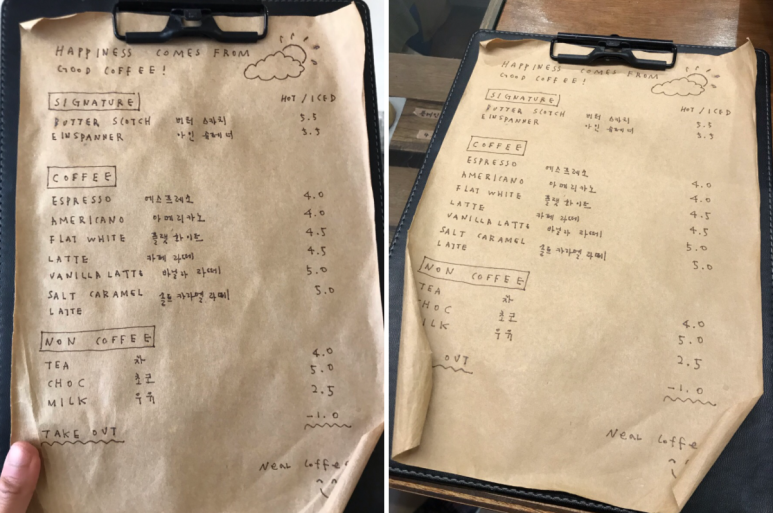 HAPPINESS COMES FROM
GOOD COFFEE!
SIGNATURE HOT / ICED
BUTTER SCOTCH 버터 스카치 5.5
EINSPANNER 아인 슈페너 5.5
COFFEE
ESPRESSO 에스프레소 4.0
AMERICANO 아메리카노 4.0
FLAT WHITE 플랫 화이트 4.5
LATTE 카페 라떼 4.5
VANILLA LATTE 바닐라 라떼 5.0
SALT CARAMEL 솔트 카라멜 라떼 5.0
LATTE
NON COFFEE
TEA 차 4.0
CHOC 초코 5.0
MILK 우유 2.5
TAKE OUT -1.0
Neal Coffe
HAPPINESS COMES FROM
GOOD COFFEE!
SIGNATURE HOT / ICED
BUTTER SCOTCH 버터 스카치 5.5
EINSPANNER 아인 슈페너 5.5
COFFEE
ESPRESSO 에스프레소 4.0
AMERICANO 아메리카노 4.0
FLAT WHITE 플랫 화이트 4.5
LATTE 카페 라떼 4.5
VANILLA LATTE 바닐라 라떼 5.0
SALT CARAMEL 솔트 카라멜 라떼 5.0
LATTE
NON COFFEE
TEA 차 4.0
CHOC 초코 5.0
MILK 우유 2.5
OUT -1.0
Neal Coffe